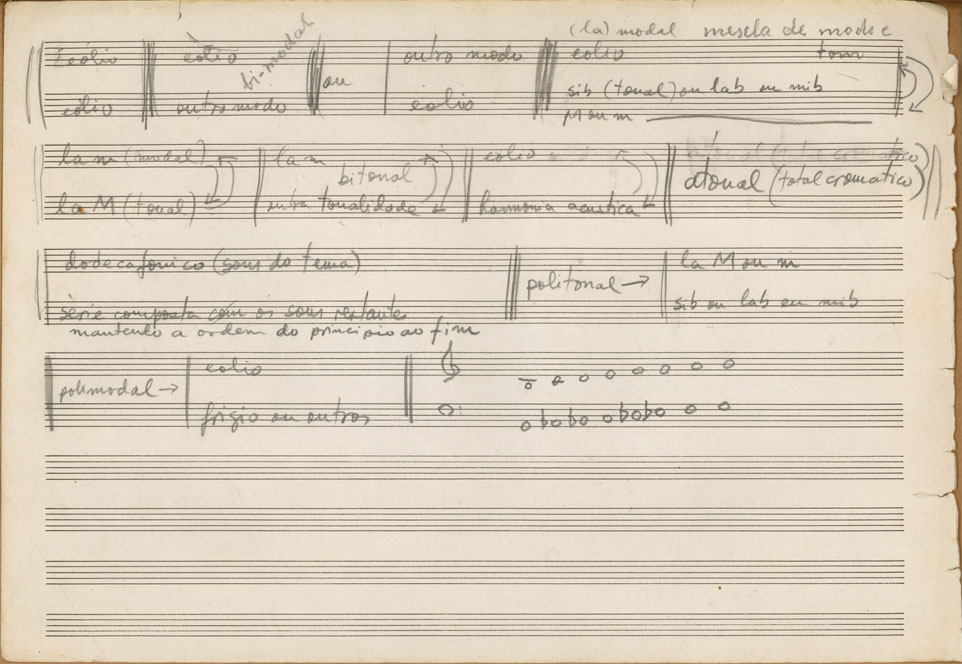 (la) modal mescla de modo e
eólio eólio bi-modal outro modo eolio tom
ou
eólio outro modo eólio sib (tonal) ou lab ou mib
M ou m
la m (modal) la m eolio
bitonal atonal (total cromatico)
la M (tonal) outra tonalidade harmonia acustica
dodecafonico (sons do tema) la M ou m
politonal →
série composta com os sons restantes sib ou lab ou mib
mantendo a ordem do principio ao fim
eolio
polimodal →
frigio ou outros